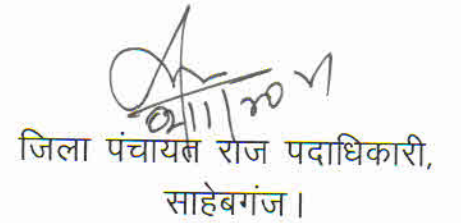 जिला पंचायत राज पदाधिकारी,
साहेबगंज।